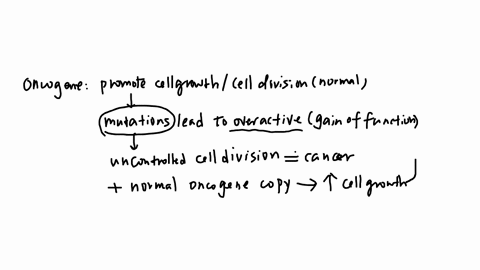 Oncogene: promote cell growth / cell division (normal)
mutations lead to overactive (gain of function)
uncontrolled cell division = cancer
+ normal oncogene copy → ↑ cell growth